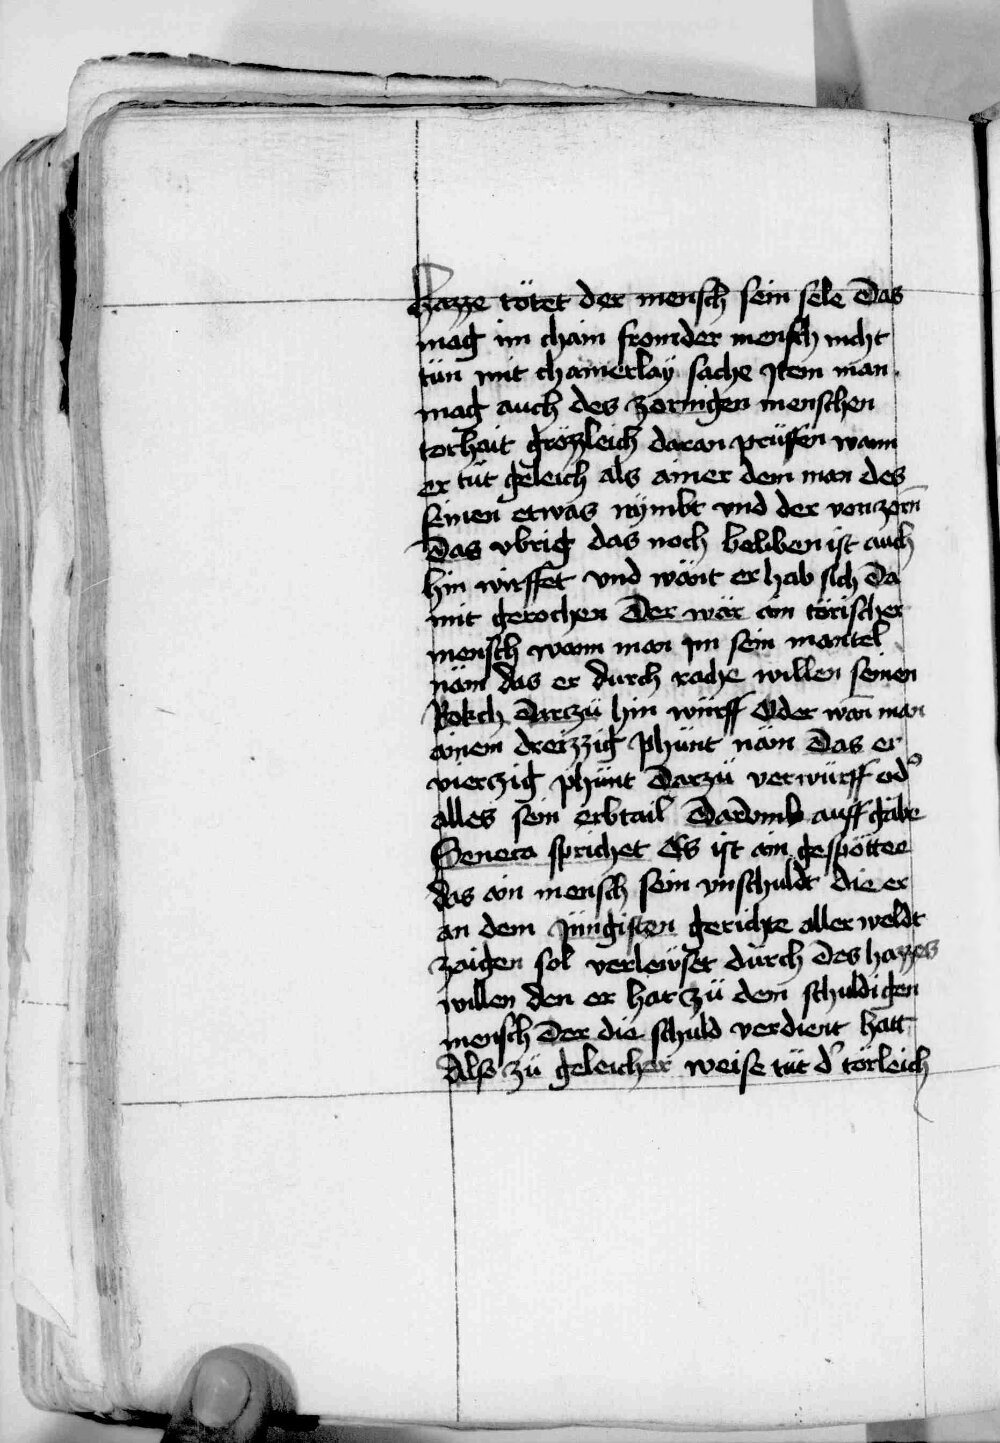 hazze tötet der mensch sein sele Das
mag im chain fromder mensch nicht
tün mit chainerlay sache Item man
mag auch des zornigen menschen
torhait grözzleich daran prüffen wann
er tüt geleich als ainer dem man des
seinen etwas nymbt vnd der von zorn
Das vbrig das noch beliben ist auch
hin wirffet vnd wänt er hab sich Da
mit gerochen Der wär ain törischer
mensch wann man im sein mantel
näm das er durch rache willen seinen
Rokch Darczü hin würff Oder wan man
ainem dreizzig phünt näm Das er
vierczig phünt Darzü verwürff od'
alles sein erbtail Darvmb auff gäbe
Seneca sprichet Es ist ain gespötte
das ain mensch sein vnschuldt die er
an dem jüngisten gerichte aller weldt
zaigen sol verlewset durch des hazzes
willen den er hat zü dem schuldigen
mensch Der die schuld verdient hatt
Also zü geleicher weise tüt d' törleich